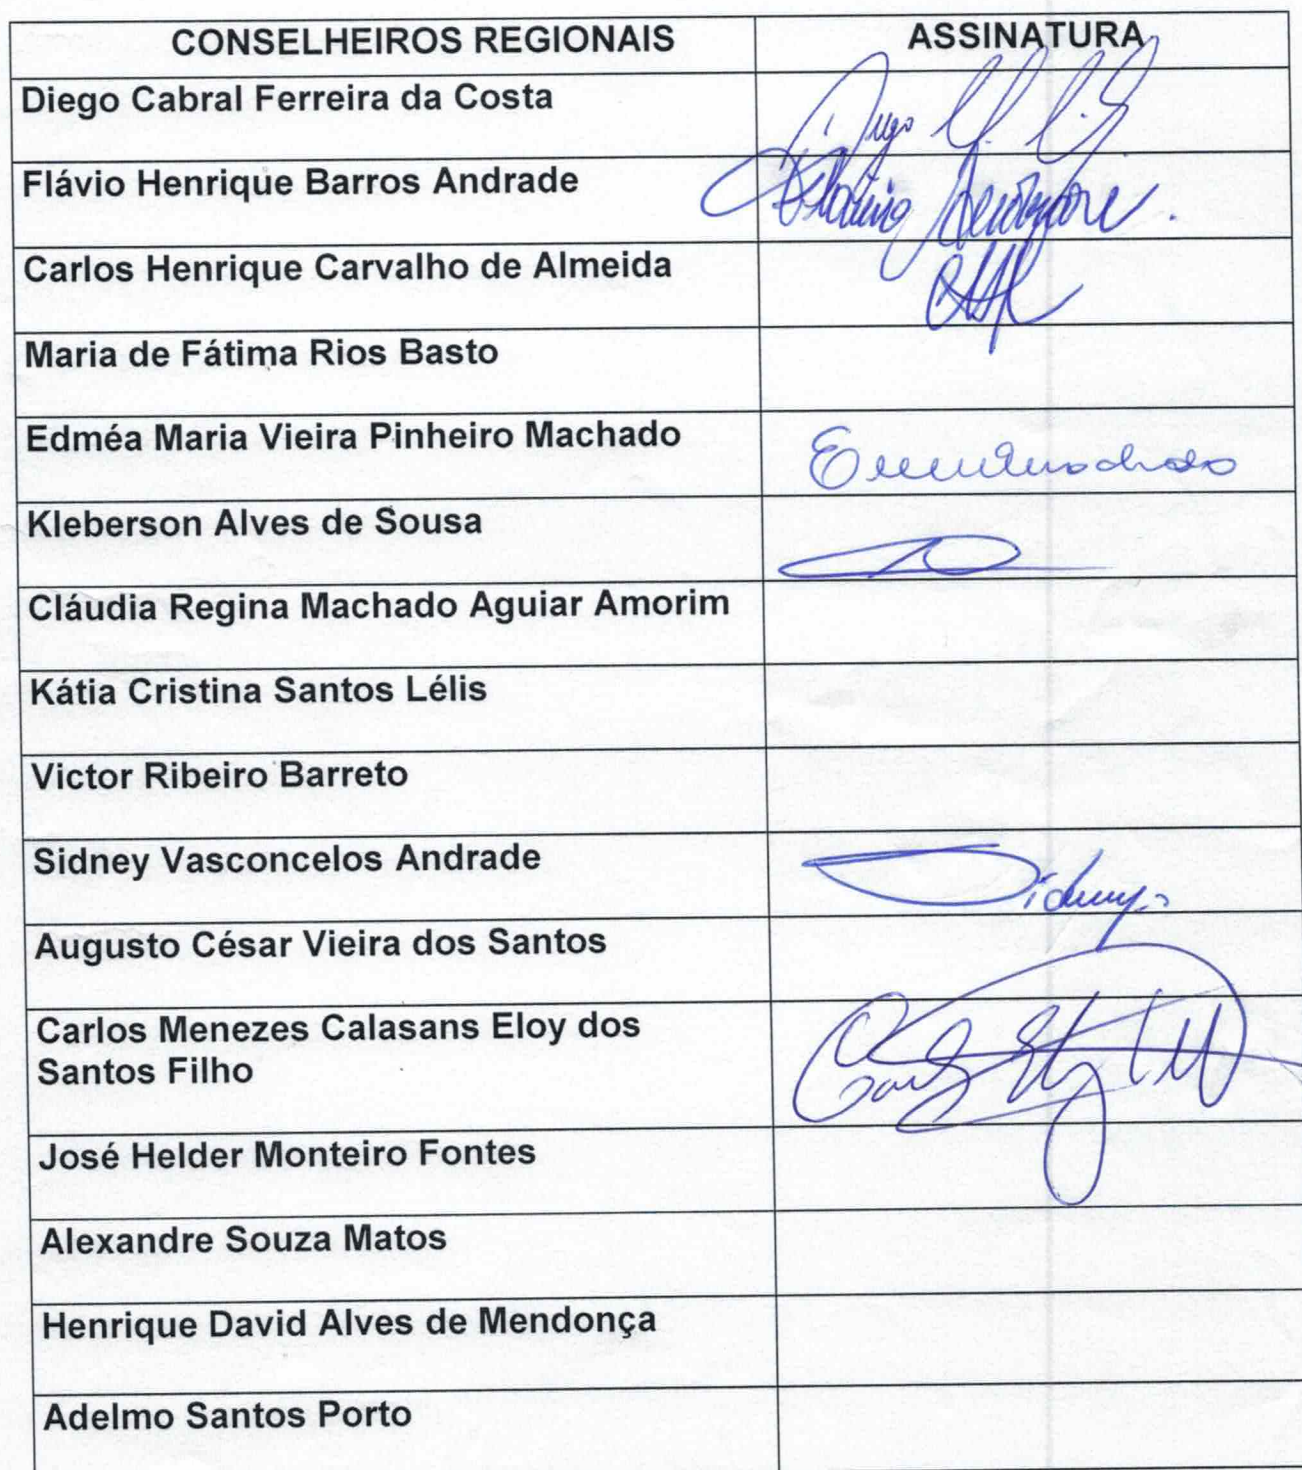 CONSELHEIROS REGIONAIS ASSINATURA
Diego Cabral Ferreira da Costa
Flávio Henrique Barros Andrade
Carlos Henrique Carvalho de Almeida
Maria de Fátima Rios Basto
Edméa Maria Vieira Pinheiro Machado
Kleberson Alves de Sousa
Cláudia Regina Machado Aguiar Amorim
Kátia Cristina Santos Lélis
Victor Ribeiro Barreto
Sidney Vasconcelos Andrade Sidney
Augusto César Vieira dos Santos
Carlos Menezes Calasans Eloy dos
Santos Filho
José Helder Monteiro Fontes
Alexandre Souza Matos
Henrique David Alves de Mendonça
Adelmo Santos Porto